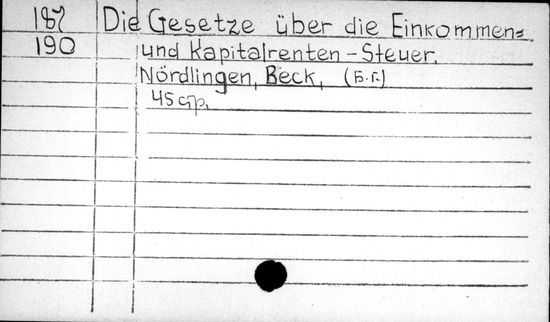 187 Die Gesetze über die Einkommen=
190 und Kapitalrenten-Steuer.
Nördlingen, Beck, (б.г.)
45 стр.